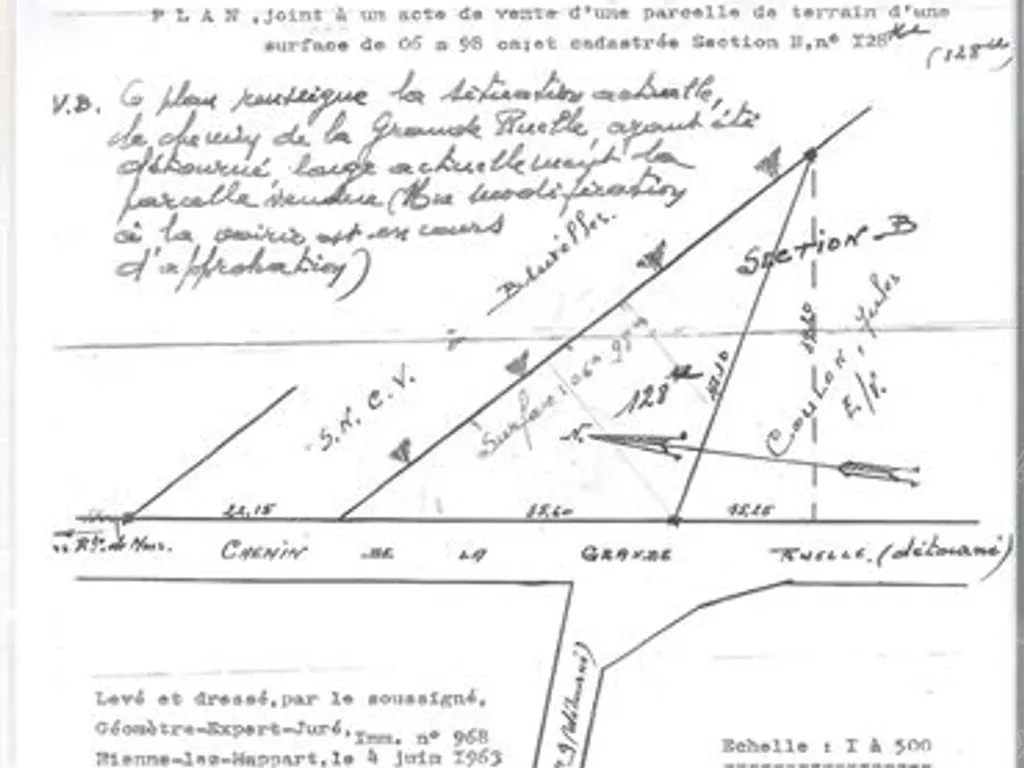 P L A N ,joint à un acte de vente d'une parcelle de terrain d'une
surface de 06 a 98 ca;et cadastrée Section B,n° I28
(128
V.B. Ce plan renseigne la situation actuelle,
le chemin de la Grande Ruelle, ayant été
détourné longe actuellement la
parcelle vendue (Une modification
à la voirie est en cours
d'approbation)
Bluvelles.
SECTION B
S.N.C.V.
Surface: 06a 98ca
128
COULON, Jules
E/P.
22,15
35,60
15,25
Rte de Mons.
CHEMIN DE LA GRANDE RUELLE. (détourné)
(détourné)
Levé et dressé,par le soussigné,
Géomètre-Expert-Juré,Imm. n° 968
Rienne-lez-Happart,le 4 juin I963
Echelle : I à 500